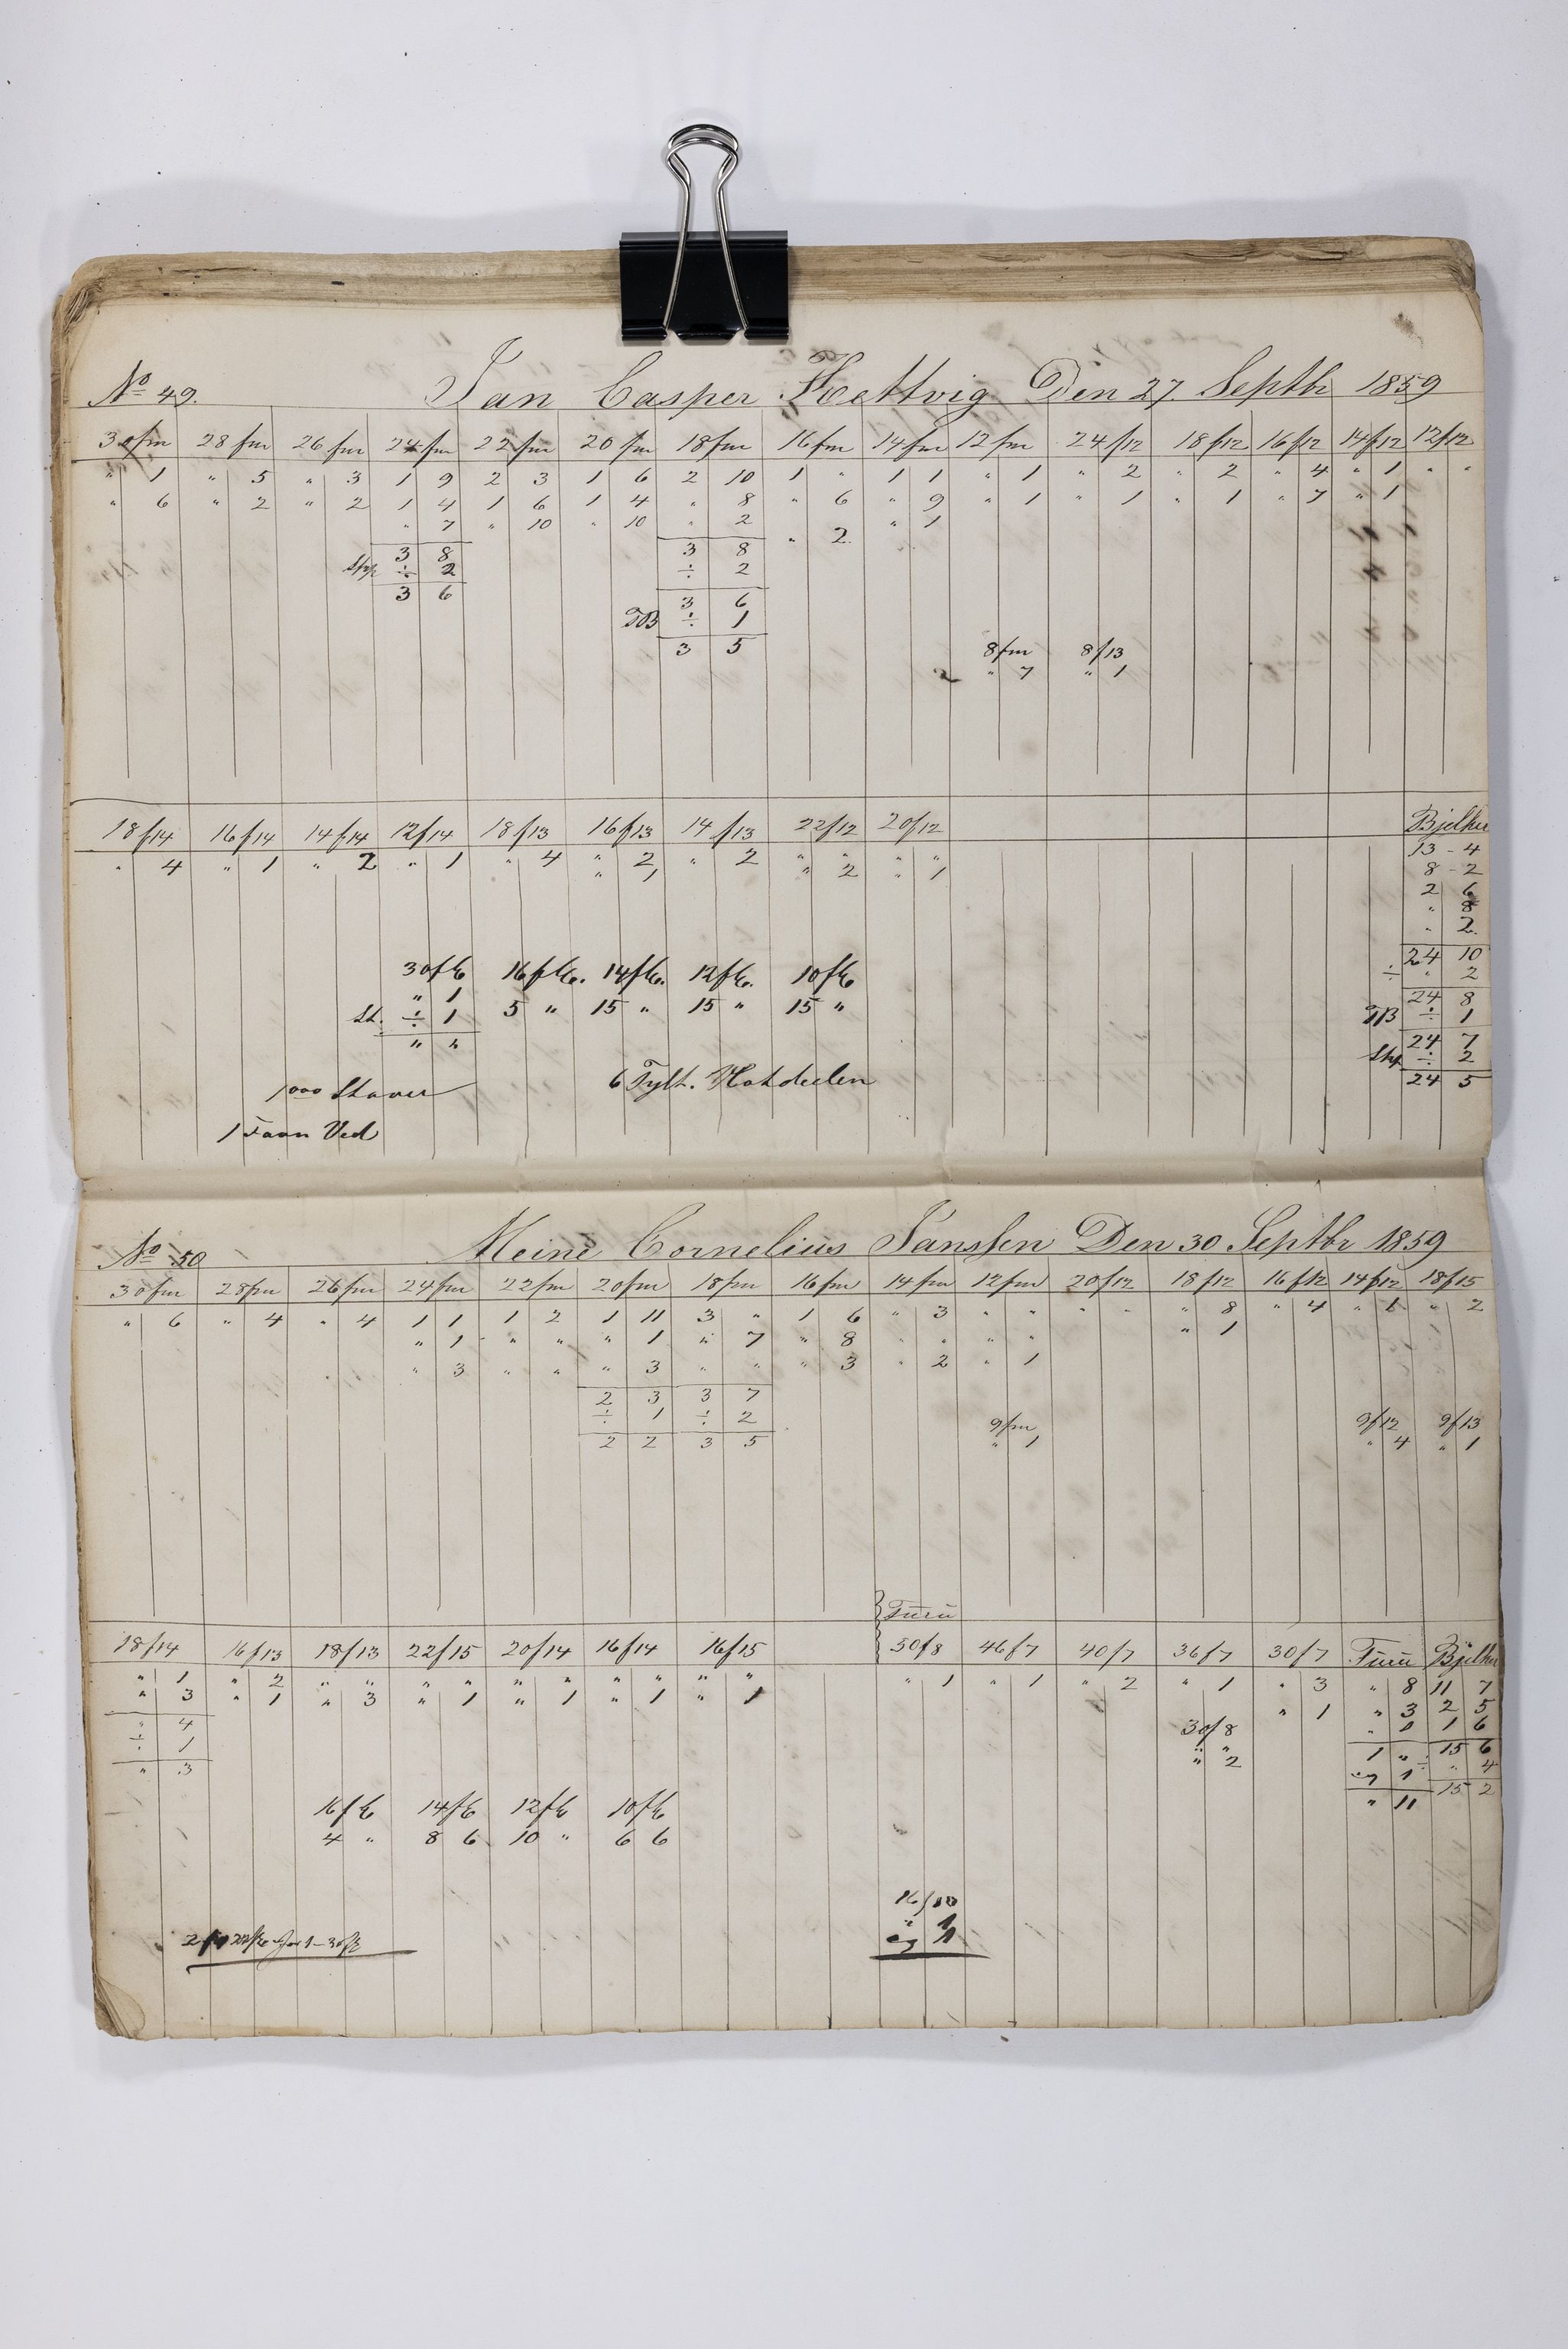 No 49. Jan Casper Hettvig Den 27 Septbr 1859
30 fm 28 fm 26 fm 24 fm 22 fm 20 fm 18 fm 16 fm 14 fm 12 fm 24/12 18/12 16/12 14/12 12/12
" 1 " 5 " 3 1 9 2 3 1 6 2 10 1 " 1 1 " 1 " 2 " 2 " 4 " 1 " "
" 6 " 2 " 2 1 4 1 6 1 4 " 8 " 6 " 9 " 1 " 1 " 1 " 7 " 1
" 7 " 10 " 10 " 2 " 2 " 1
3 8 3 8
÷ 2 ÷ 2
3 6 3 6
TB ÷ 1
3 5
8 fm 8/13
" 7 " 1
18/14 16/14 14/14 12/14 18/13 16/13 14/13 22/12 20/12 Bjelker
" 4 " 1 " 2 " 1 " 4 " 2 " 2 " " " " 13 - 4
" 1 " 2 " 1 8 - 2
2 6
" 8
" 2
24 10
÷ " 2
24 8
TB ÷ 1
24 7
÷ 2
24 5
30f 16f 14f 12f 10f
" 1
÷ 1 5 " 15 " 15 " 15 "
" "
1000 Staver 6 Tylt. Hokdeelen
1 Favn Ved
No 50 Meine Cornelius Janssen Den 30 Septbr 1859
30 fm 28 fm 26 fm 24 fm 22 fm 20 fm 18 fm 16 fm 14 fm 12 fm 20/12 18/12 16/12 14/12 18/15
" 6 " 4 " 4 1 1 1 2 1 11 3 " 1 6 " 3 " " " " " 8 " 4 " 1 " 2
" 1 " " " 1 " 7 " 8 " " " " " 1
" 3 " " " 3 " " " 3 " 2 " 1
2 3 3 7
÷ 1 ÷ 2
2 2 3 5
9 fm 9/12 9/13
" 1 " 4 " 1
Furu
18/14 16/13 18/13 22/15 20/14 16/14 16/15 50/8 46/7 40/7 36/7 30/7 Furu Bjelker
" 1 " 2 " " " " " " " " " " " 1 " 1 " 2 " 1 " 3 " 8 11 7
" 3 " 1 " 3 " 1 " 1 " 1 " 1 " 1 " 3 2 5
" 4 30/8 " 1 1 6
÷ 1 " " 1 " 15 6
" 3 " 2 ÷ 1 ÷ " 4
" 11 15 2
16f 14f 12f 10f
4 " 8 6 10 " 6 6
16/10
" 1
÷ 1